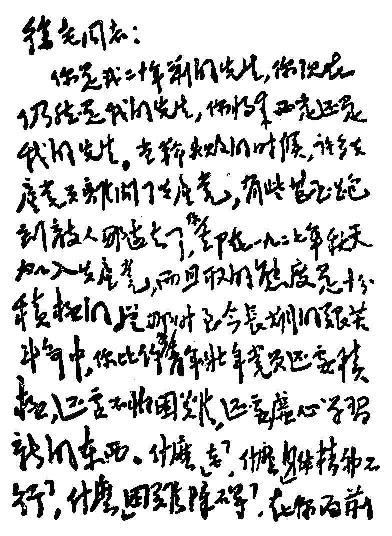 徐老同志：
你是我二十年前的先生，你现在
仍然是我的先生，你将来必定还是
我的先生。当革命失败的时候，许多共
產党员離開了共產党，有些甚至跑
到敌人那边去了，你却在一九二七年秋天
加入共產党，而且取的態度是十分
積極的。從那时至今長期的艰苦
斗争中，你比许多青年壮年党员还要積
極，还要不怕困难，还要虚心学習
新的东西。什麽“老”，什麽“身体精神不
行”，什麽“困難障碍”，在你面前